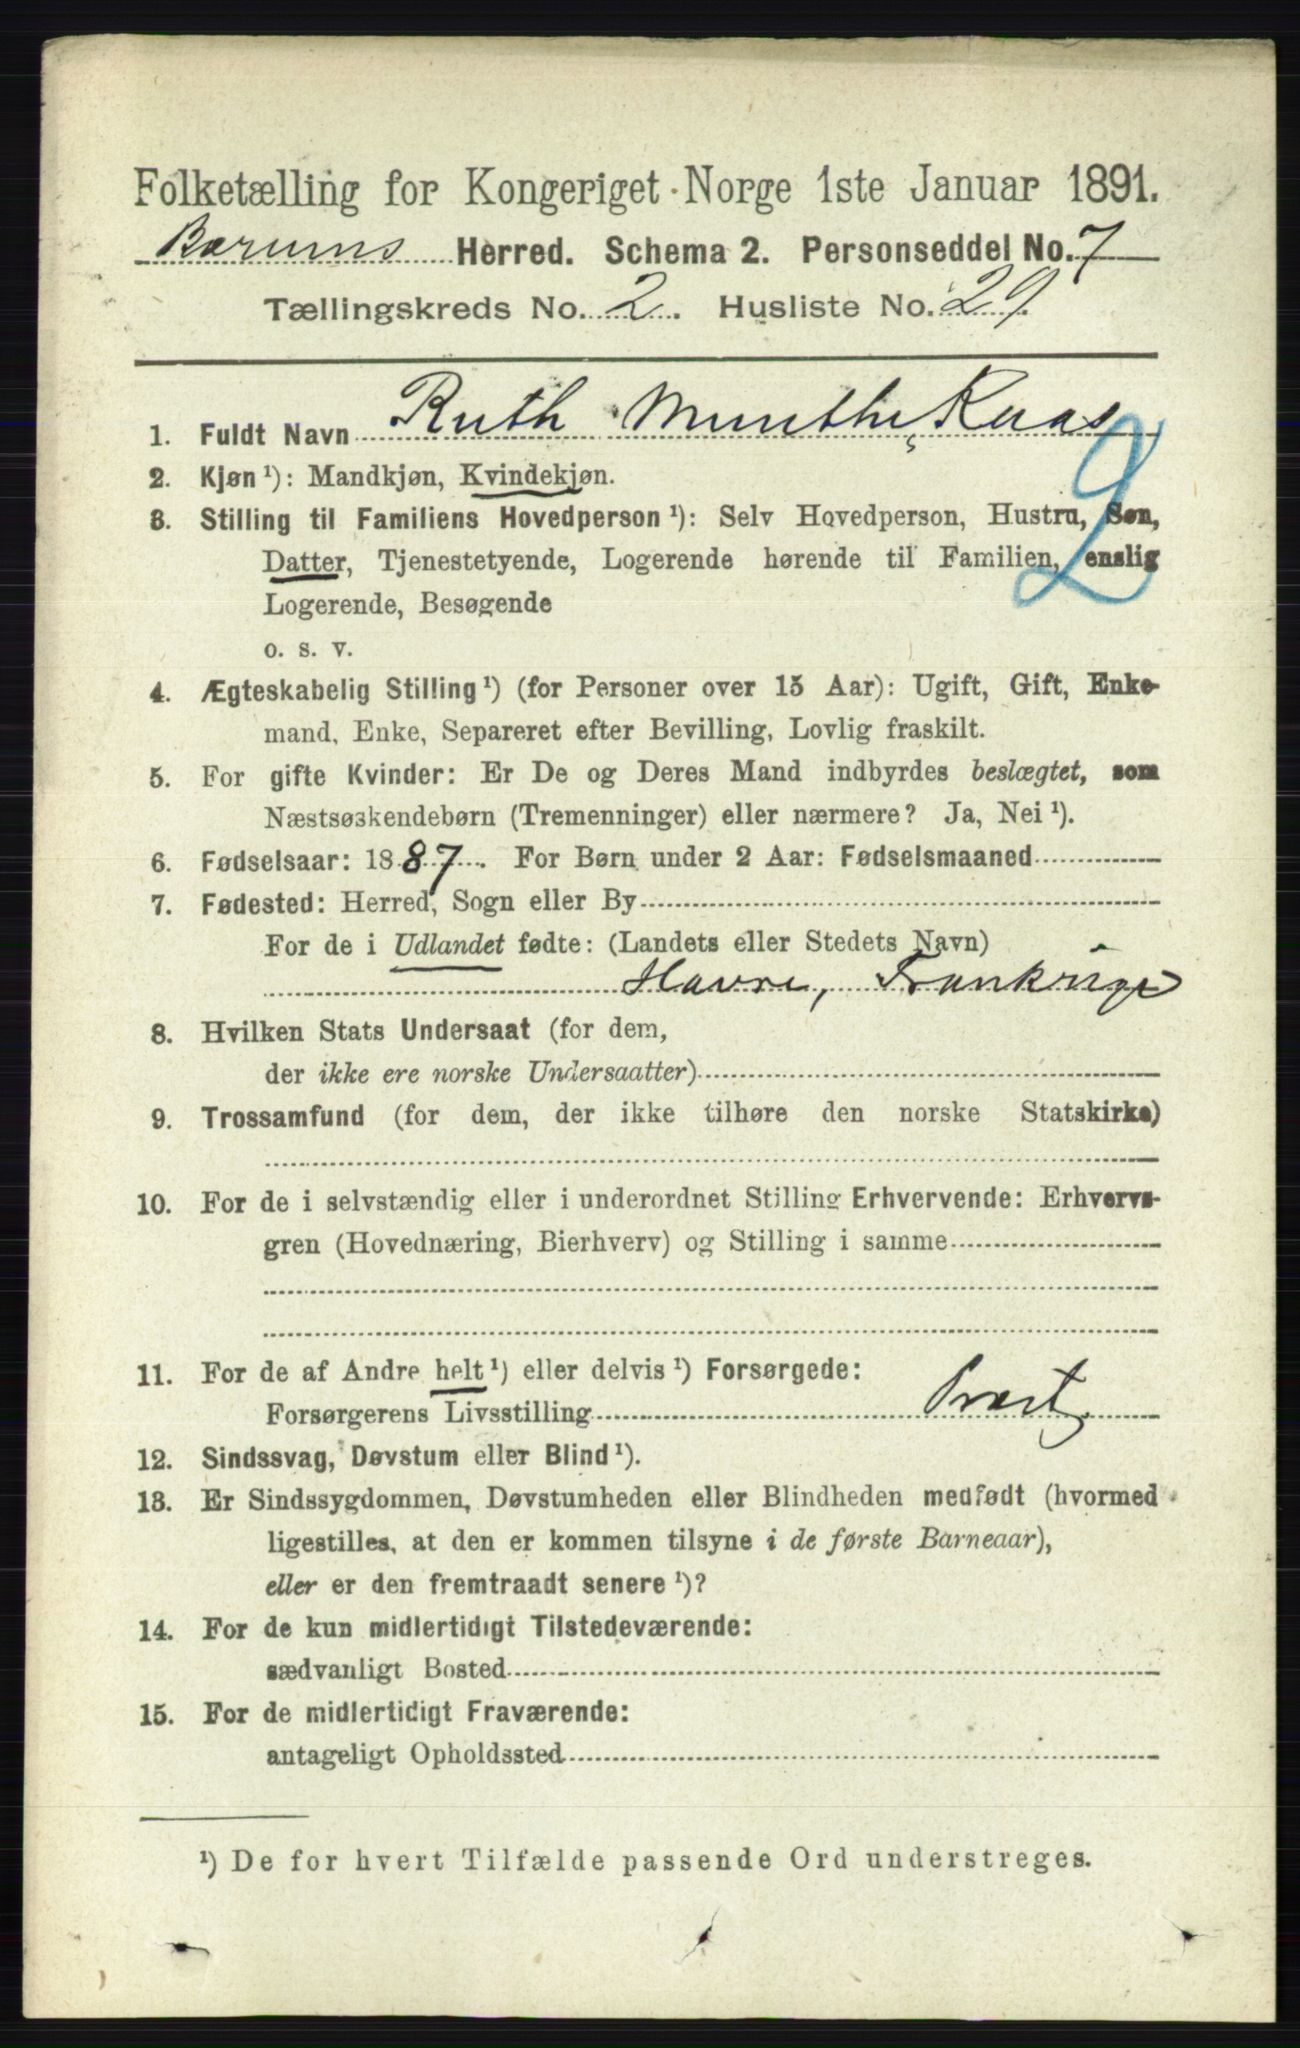 Folketælling for Kongeriget Norge 1ste Januar 1891.
Bærums Herred. Schema 2. Personseddel No. 7
Tællingskreds No. 2. Husliste No. 29.
1. Fuldt Navn Ruth Munthe Kaas
2. Kjøn ¹): Mandkjøn, Kvindekjøn.
3. Stilling til Familiens Hovedperson ¹): Selv Hovedperson, Hustru, Søn,
Datter, Tjenestetyende, Logerende hørende til Familien, enslig
2
Logerende, Besøgende
o. s. v.
4. Ægteskabelig Stilling ¹) (for Personer over 15 Aar): Ugift, Gift, Enke-
mand, Enke, Separeret efter Bevilling, Lovlig fraskilt.
5. For gifte Kvinder: Er De og Deres Mand indbyrdes beslægtet, som
Næstsøskendebørn (Tremenninger) eller nærmere? Ja, Nei ¹).
6. Fødselsaar: 1887. For Børn under 2 Aar: Fødselsmaaned
7. Fødested: Herred, Sogn eller By
For de i Udlandet fødte: (Landets eller Stedets Navn)
Havre, Frankrige
8. Hvilken Stats Undersaat (for dem,
der ikke ere norske Undersaatter)
9. Trossamfund (for dem, der ikke tilhøre den norske Statskirke)
10. For de i selvstændig eller i underordnet Stilling Erhvervende: Erhvervs-
gren (Hovednæring, Bierhverv) og Stilling i samme
11. For de af Andre helt ¹) eller delvis ¹) Forsørgede:
Forsørgerens Livsstilling Præst
12. Sindssvag, Døvstum eller Blind ¹).
13. Er Sindssygdommen, Døvstumheden eller Blindheden medfødt (hvormed
ligestilles, at den er kommen tilsyne i de første Barneaar),
eller er den fremtraadt senere ¹)?
14. For de kun midlertidigt Tilstedeværende:
sædvanligt Bosted
15. For de midlertidigt Fraværende:
antageligt Opholdssted
¹) De for hvert Tilfælde passende Ord understreges.